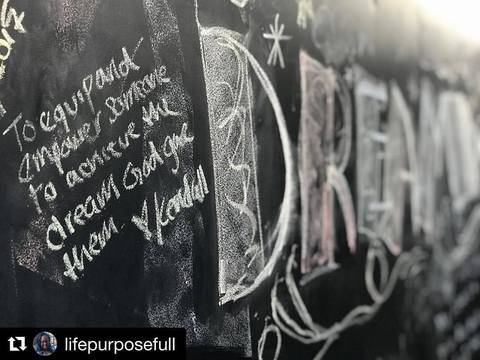 To equip and
empower someone
to achieve the
dream God gave
them.
DREAM
lifepurposefull